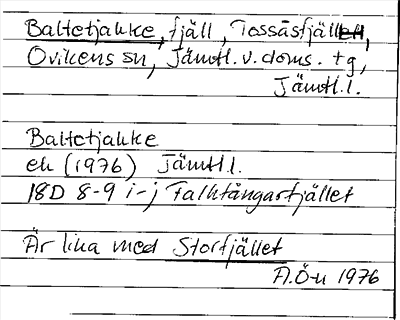 Baltetjakke, fjäll, Tossåsfjället,
Ovikens sn, Jämtl. v. doms. tg,
Jämtl. l.
Baltetjakke
ek (1976) Jämtl. l.
18D 8-9 i-j Falktångarfjället
Är lika med Storfjället
A.Ö-n 1976